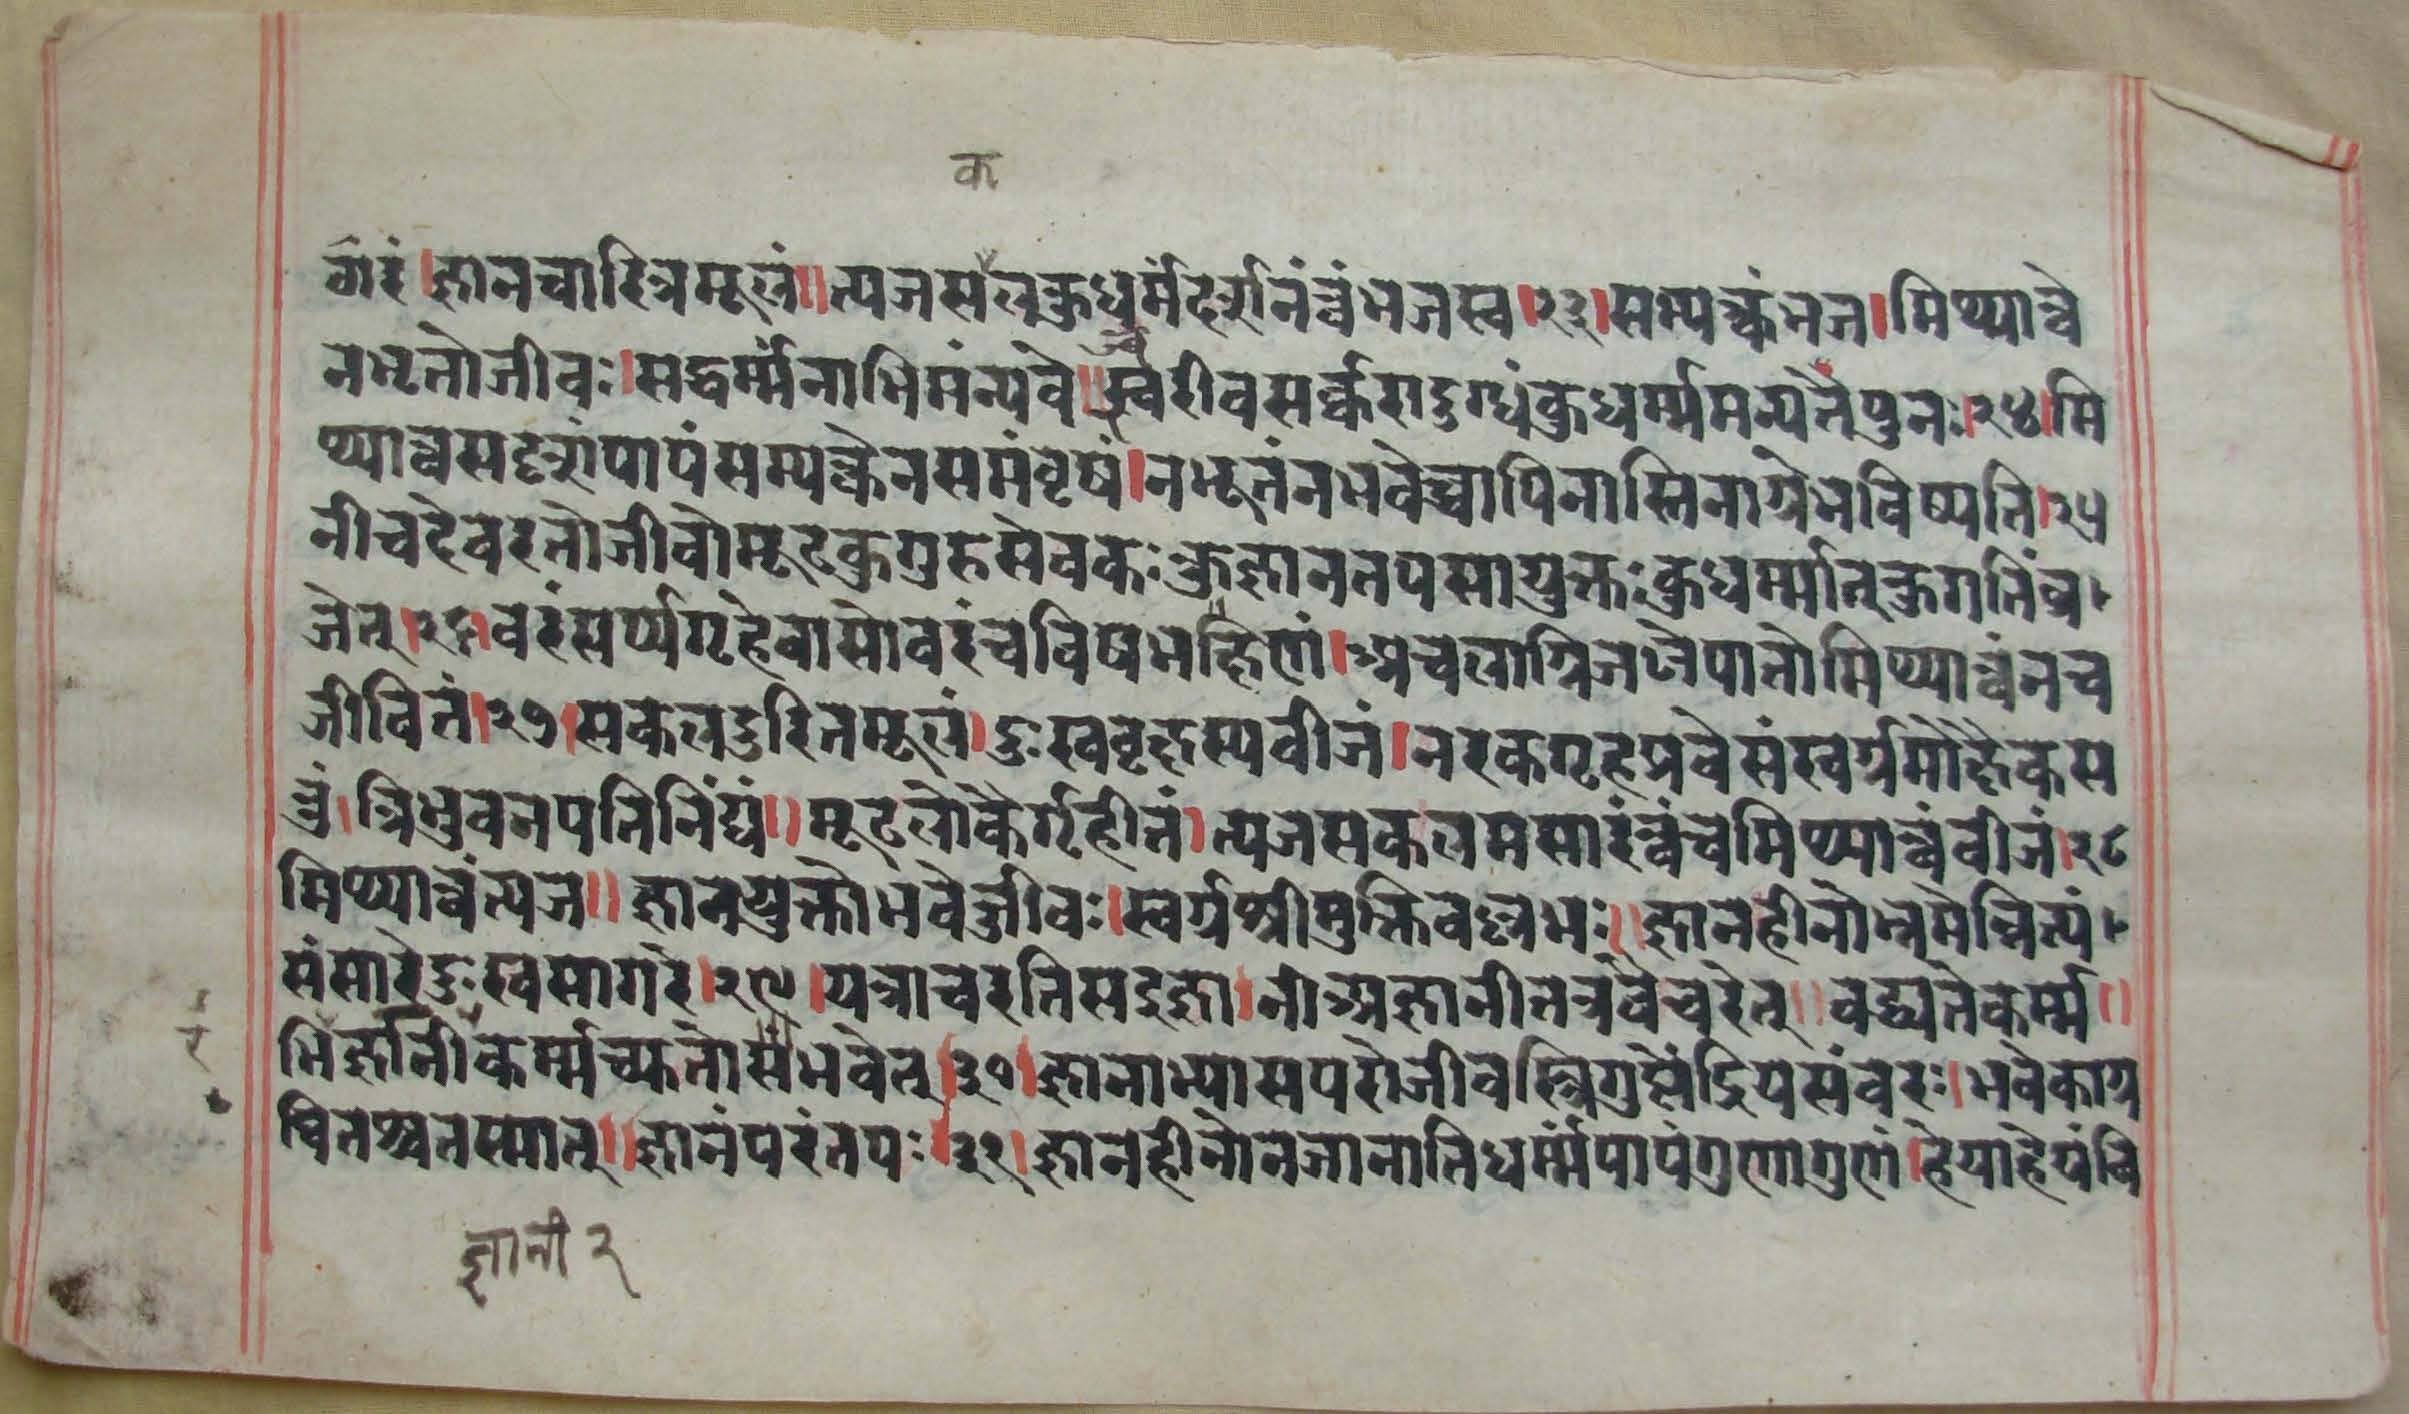 क
गारं।ज्ञानचारित्रमूलं॥त्यजसलकुधर्मंदर्शनंत्वंभजस्व।२३।सम्यक्त्वंभज।मिथ्यात्वे
नभृतोजीवः।सद्धर्म्मंनाभिमंन्यवे॥ज्वरीवसर्क्करादुग्धंकुधर्म्ममन्यतेपुनः।२४।मि
थ्यात्वसदृशंपापंसम्यक्त्वेनसमंवृषं।नभूतंनभवेच्चापिनास्तिनाग्रेभविष्यति।२५
नीचदेवरतोजीवोमूढकुगुरुसेवकःकुज्ञानतपसायुक्तःकुधर्म्मात्कुगतिंव्र
जेत्।२६।वरंसर्प्पगृहेवासोवरंचविषभक्षिणं।अचलाग्निजलेपातोमिथ्यात्वंनच
जीवितं।२७।सकलदुरितमूलं।दुःखवृक्षस्यवीजं।नरकगृहप्रवेसंस्वर्ग्गमोक्षैकस
त्रुं।त्रिभुवनपतिनिंद्यं॥मूढलोकैर्गृहीतं।त्यजसकलमसारंत्वंचमिथ्यात्वंवीजं।२८
मिथ्यात्वंत्यज॥ज्ञानयुक्तोभवेज्जीवः।स्वर्ग्गश्रीमुक्तिवल्लभः॥ज्ञानहीनोभ्रमेन्नित्यं
संसारेदुःखसागरे।२९।यत्राचरतिसद्ज्ञा।नीअज्ञानीतत्रवैचरेत्॥वद्ध्यतेकर्म्म॥
भिर्ज्ञानीकर्म्मच्यतोसंभवेत्।३०।ज्ञानाभ्यासपरोजीवस्त्रिगुप्तेंद्रियसंवरः।भवेकाग्र
चितश्चतस्मात्॥ज्ञानंपरंतपः।३१।ज्ञानहीनोनजानातिधर्म्मंपापंगुणागुणं।हेयाहेयंवि
ज्ञानी २